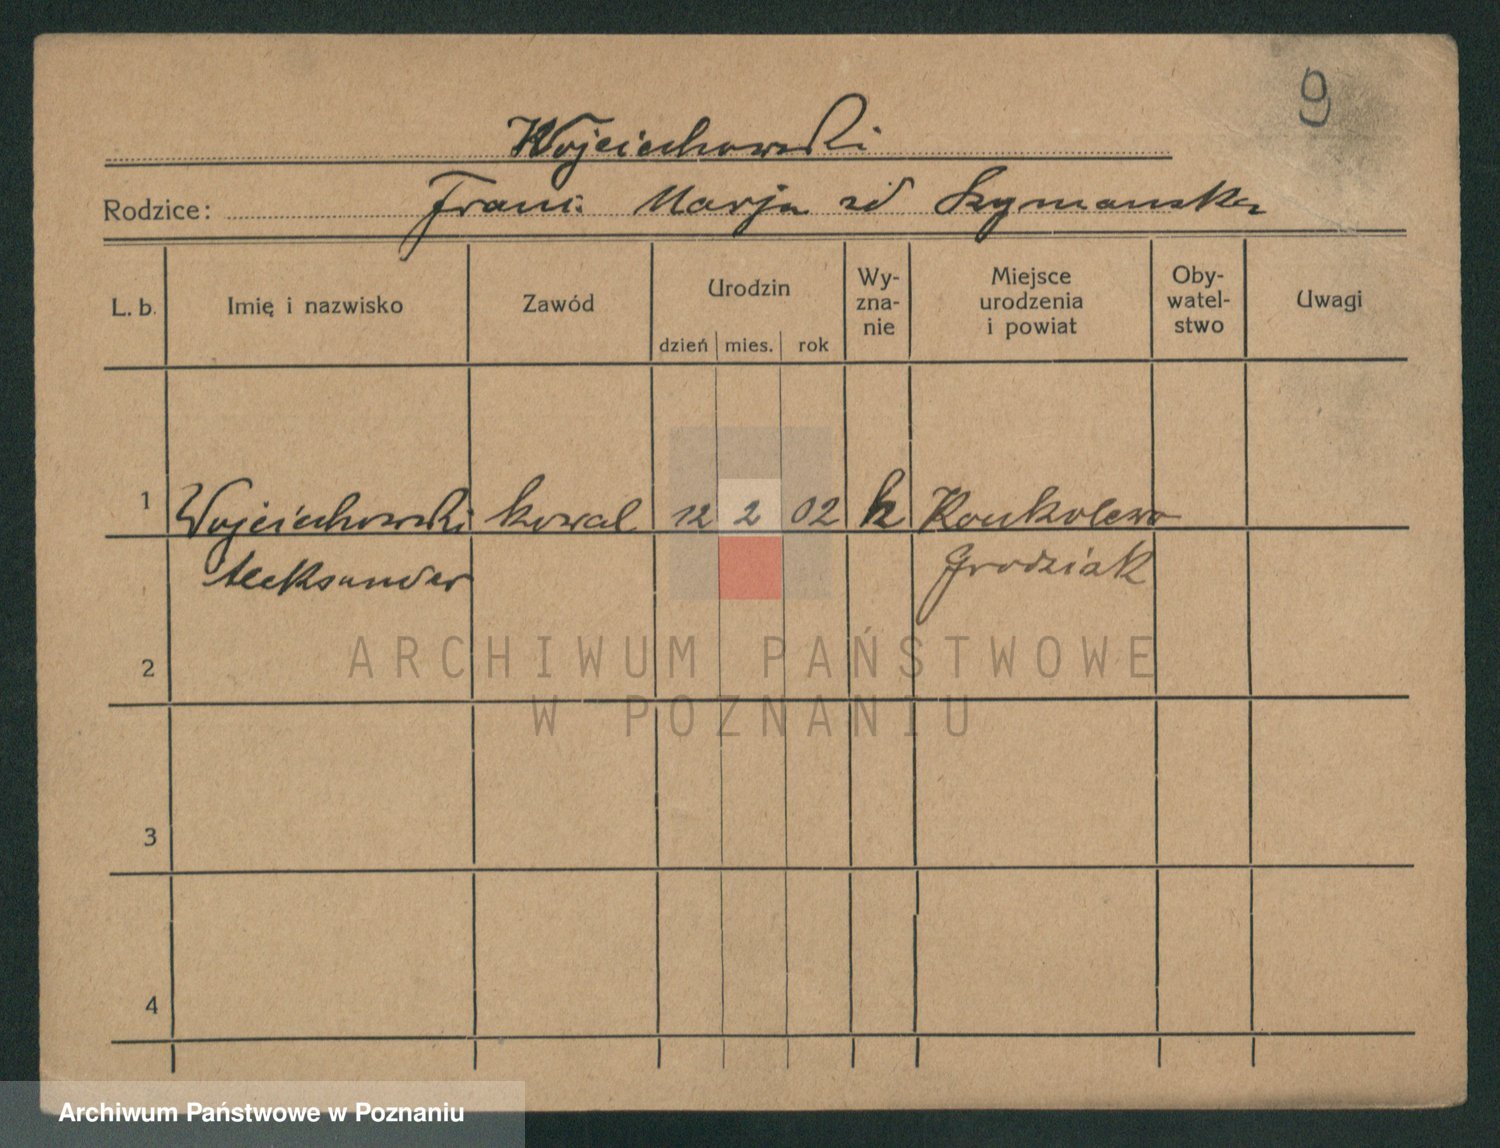 9
Wojciechowski
Rodzice: Franc. Marja zd Szymanska
L. b. Imię i nazwisko Zawód Urodzin dzień mies. rok Wy-zna-nie Miejsce urodzenia i powiat Oby-watel-stwo Uwagi
1 Wojciechowski kowal 12 2 02 k Konkolewo
Aleksander Grodzisk
2
3
4
ARCHIWUM PAŃSTWOWE
W POZNANIU
Archiwum Państwowe w Poznaniu